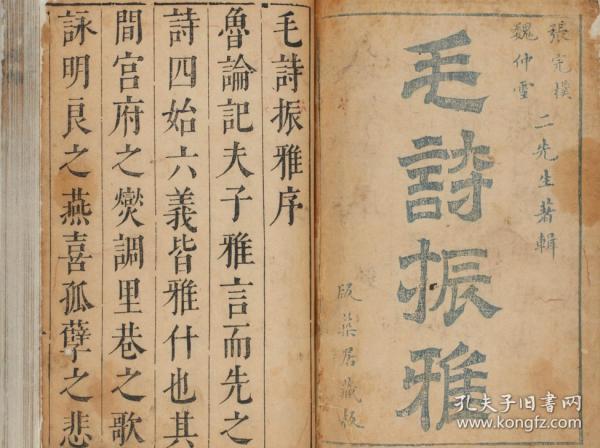 張完樸
魏仲雪
二先生著輯
毛詩振雅
版築居藏板
毛詩振雅序
魯論記夫子雅言而先之
詩四始六義皆雅什也其
間宫府之爕調里巷之歌
詠明良之燕喜孤孽之悲
孔夫子旧书网
www.kongfz.com